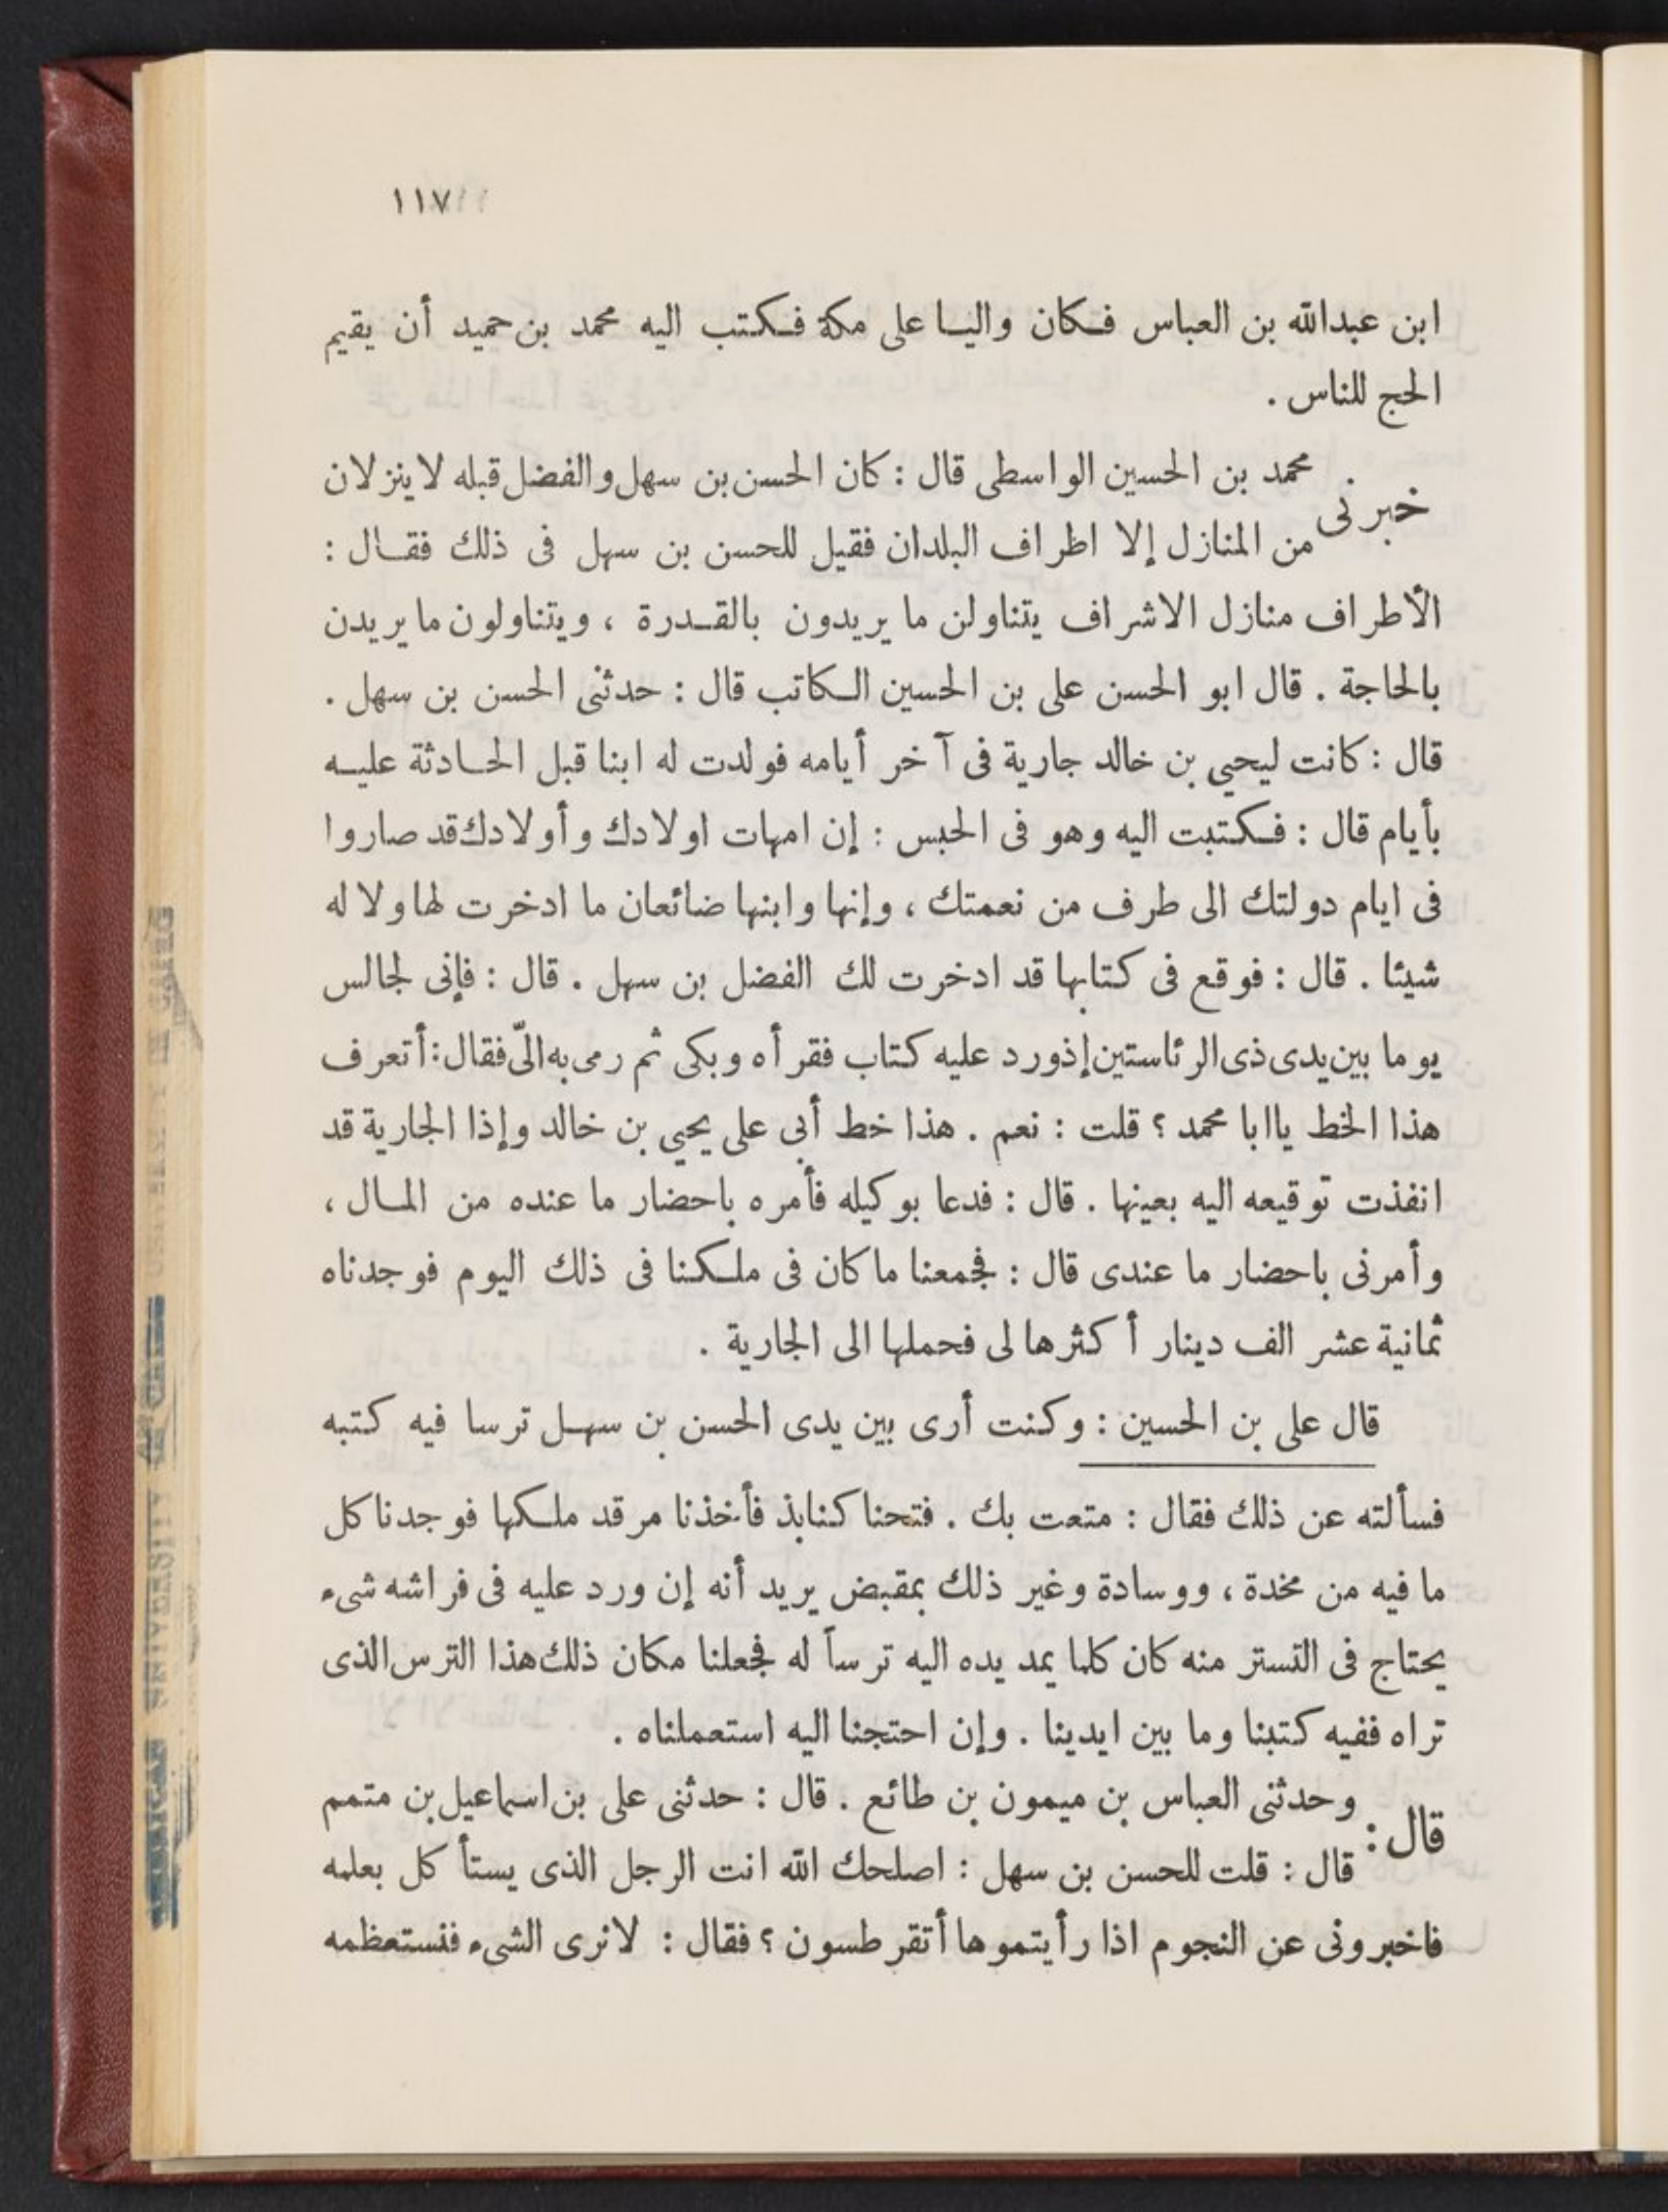 ١١٧
ابن عبدالله بن العباس فكان واليا على مكة فكتب اليه محمد بن حميد أن يقيم
الحج للناس .
خبرنى محمد بن الحسين الواسطى قال : كان الحسن بن سهل والفضل قبله لا ينزلان
من المنازل إلا اطراف البلدان فقيل للحسن بن سهل فى ذلك فقال :
الأطراف منازل الاشراف يتناولن ما يريدون بالقدرة ، ويتناولون ما يريدن
بالحاجة . قال ابو الحسن على بن الحسين الكاتب قال : حدثنى الحسن بن سهل .
قال : كانت ليحيي بن خالد جارية فى آخر أيامه فولدت له ابنا قبل الحادثة عليه
بأيام قال : فكتبت اليه وهو فى الحبس : إن امهات اولادك وأولادك قد صاروا
فى ايام دولتك الى طرف من نعمتك ، وإنها وابنها ضائعان ما ادخرت لها ولا له
شيئا . قال : فوقع فى كتابها قد ادخرت لك الفضل بن سهل . قال : فإنى لجالس
يوما بين يدى ذى الرئاستين إذورد عليه كتاب فقرأه وبكى ثم رمى به الىّ فقال : أتعرف
هذا الخط ياابا محمد ؟ قلت : نعم . هذا خط أبى على يحيي بن خالد وإذا الجارية قد
انفذت توقيعه اليه بعينها . قال : فدعا بوكيله فأمره باحضار ما عنده من المال ،
وأمرنى باحضار ما عندى قال : فجمعنا ما كان فى ملكنا فى ذلك اليوم فوجدناه
ثمانية عشر الف دينار أكثرها لى فحملها الى الجارية .
قال على بن الحسين : وكنت أرى بين يدى الحسن بن سهل ترسا فيه كتبه
فسألته عن ذلك فقال : متعت بك . فتحنا كنابذ فأخذنا مرقد ملكها فوجدنا كل
ما فيه من مخدة ، ووسادة وغير ذلك بمقبض يريد أنه إن ورد عليه فى فراشه شىء
يحتاج فى التستر منه كان كلما يمد يده اليه ترساً له فجعلنا مكان ذلك هذا الترس الذى
تراه ففيه كتبنا وما بين ايدينا . وإن احتجنا اليه استعملناه .
قال : وحدثنى العباس بن ميمون بن طائع . قال : حدثنى على بن اسماعيل بن متمم
قال : قلت للحسن بن سهل : اصلحك الله انت الرجل الذى يستأ كل بعلمه
فاخبرونى عن النجوم اذا رأيتموها أتقرطسون ؟ فقال : لانرى الشىء فنستعظمه
AMERICAN UNIVERSITY IN CAIRO